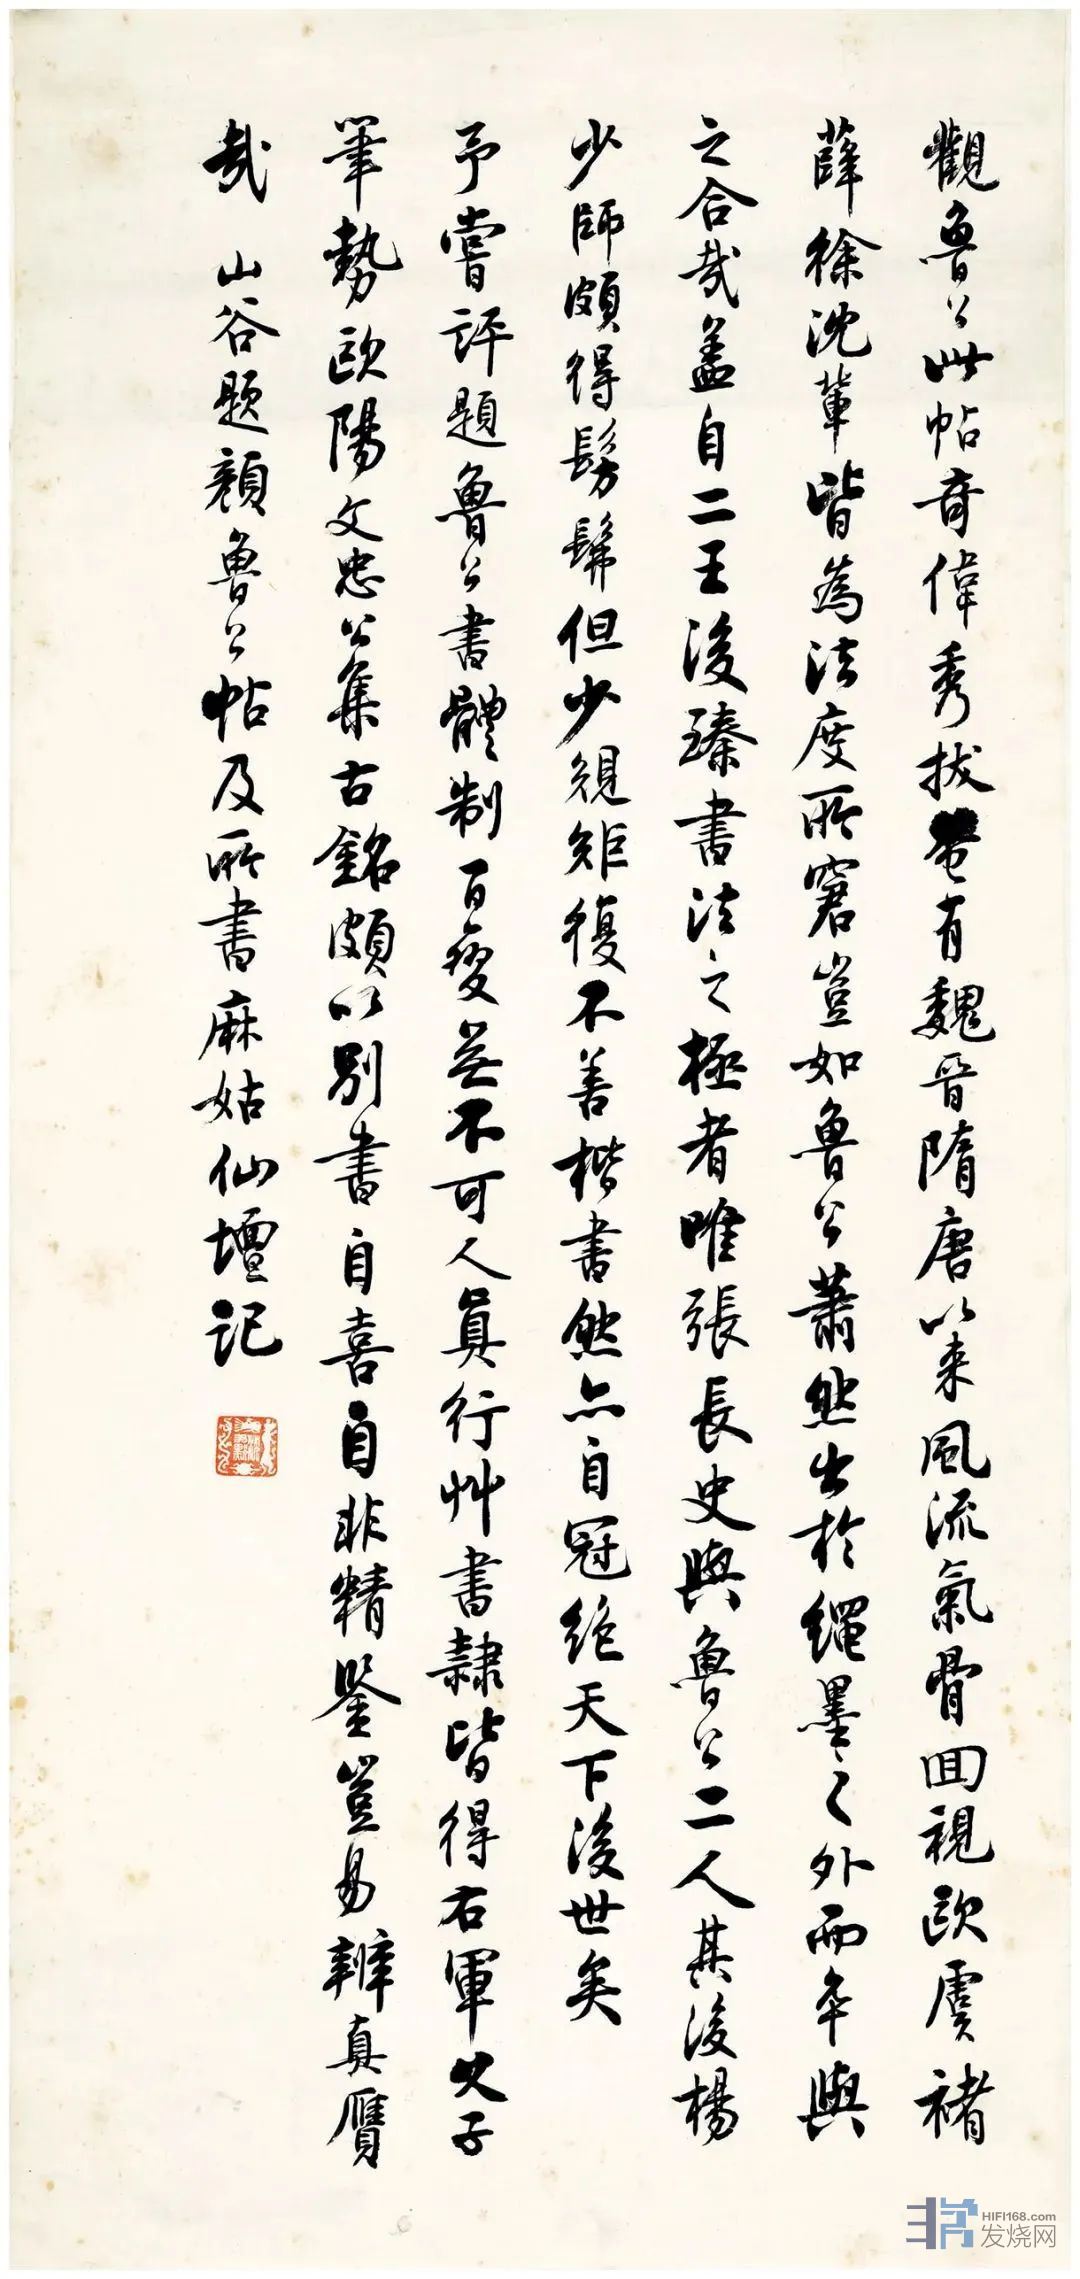 觀魯公此帖奇偉秀拔奄有魏晉隋唐以來風流氣骨回視歐虞褚
薛徐沈輩皆為法度所窘豈如魯公蕭然出於繩墨之外而卒與
之合哉蓋自二王後臻書法之極者唯張長史與魯公二人其後楊
少師頗得髣髴但少規矩復不善楷書然亦自冠絕天下後世矣
予嘗評題魯公書體制百變無不可人真行艸書隸皆得右軍父子
筆勢歐陽文忠公集古銘頗以別書自喜自非精鑒豈易辨真贗
哉 山谷題顏魯公帖及所書麻姑仙壇記
HIFI168.com
发烧网